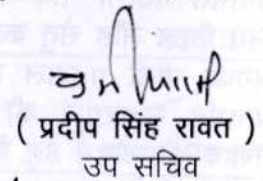 ( प्रदीप सिंह रावत )
उप सचिव